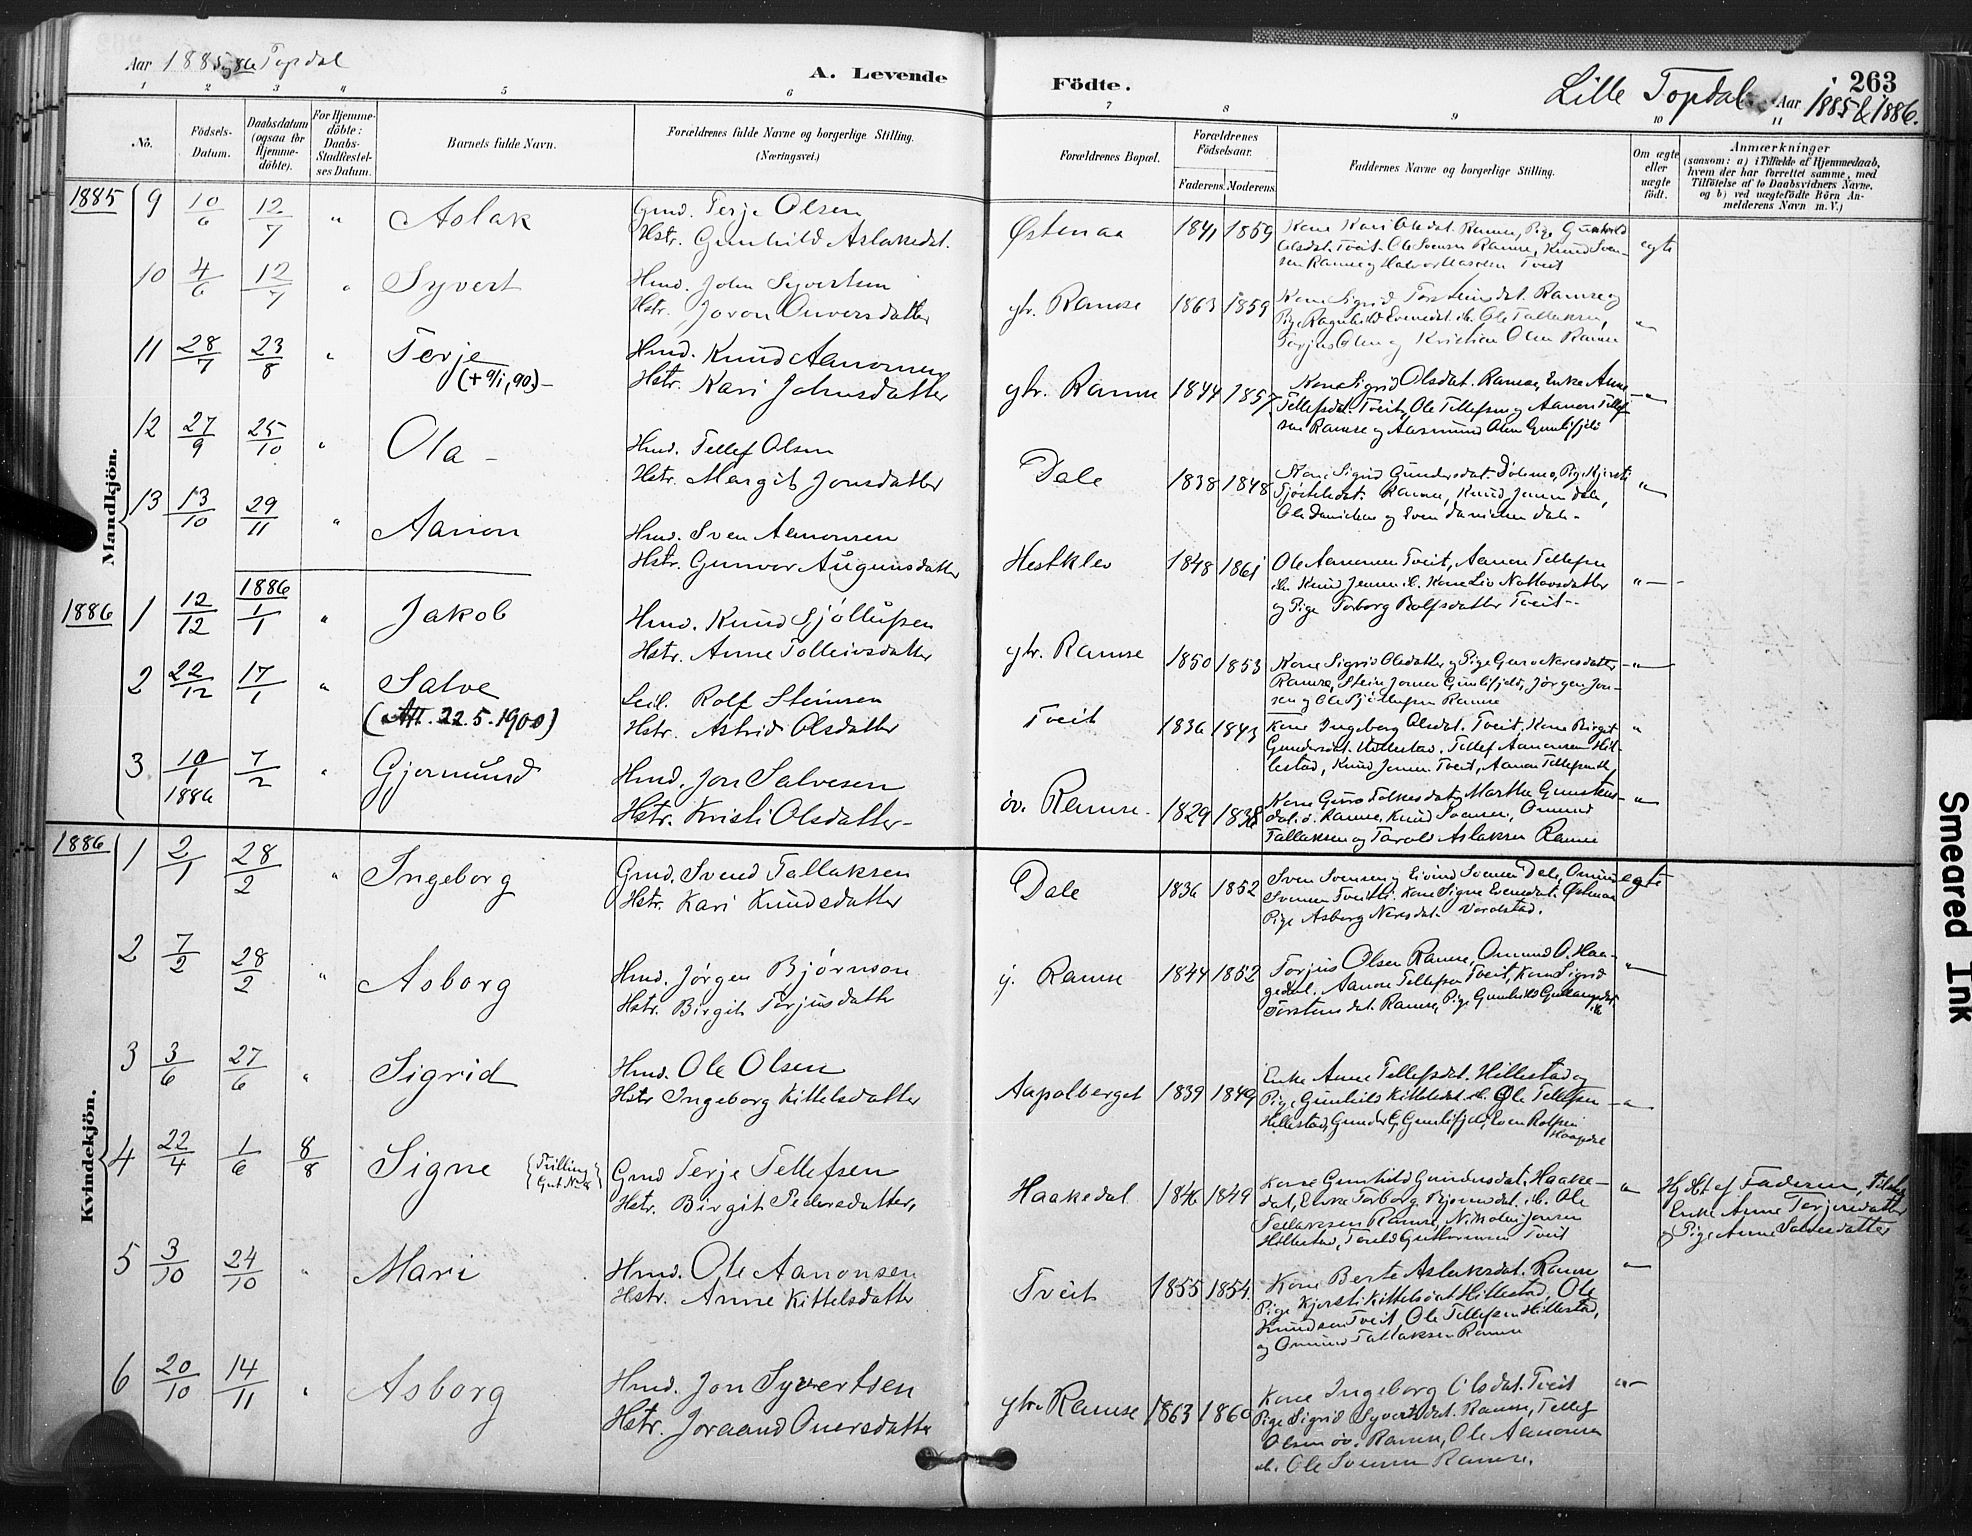 Aar 1885 og 86 Topdal
A. Levende Födte.
Lille Topdal Aar 1885 & 1886.
263
1 2 3 4 5 6 7 8 9 10 11
No.
Födsels-Datum.
Daabsdatum (ogsaa for Hjemme-döbte).
For Hjemme-döbte: Daabs-Stadfæstel-ses Datum.
Barnets fulde Navn.
Forældrenes fulde Navne og borgerlige Stilling. (Næringsvei.)
Forældrenes Bopæl.
Forældrenes Födselsaar.
Faderens. Moderens.
Faddernes Navne og borgerlige Stilling.
Om ægte eller uægte født.
Anmærkninger
(saasom: a) i Tilfælde af Hjemmedaab,
hvem der har forrettet samme, med
Tilføielse af to Daabsvidners Navne,
og b) ved uægtefødte Börn An-
melderens Navn m. V.)
Mandkjön.
1885 9 10/6 12/7 " Aslak
Gmd. Terje Olsen
Hstr. Gunhild Aslaksdat.
Østenaa 1841 1859
Kone Kari Olsdat. Ramse, Pige Gunhild
Olsdat. Tveit. Ole Svensen Ramse, Knud Sven-
sen Ramse og Halvor Tveit
egte
10 4/6 12/7 " Syvert
Hmd. John Syvertsen
Hstr. Joron Onversdatter
ytr. Ramse 1863 1859
Kone Sigrid Torsteinsdat. Ramse og
Pige Ragnhild Evensdat. ib. Ole Tallaksen,
Torjus Olsen og Kristian Olsen Ramse
"
11 28/7 23/8 " Terje
(+ 9/1, 90.) -
Hmd. Knud Aanonsen
Hstr. Kari Johnsdatter
ytr. Ramse 1844 1857
Kone Sigrid Olsdat. Ramse, Enke Anne
Tellefsdat. Tveit, Ole Tellefsen og Aanon Tellef-
sen Ramse og Aasmund Olsen Gunlifjeld
"
12 27/9 25/10 " Ola -
Hmd. Tellef Olsen
Hstr. Margit Jonsdatter
Dale 1838 1848
Kone Sigrid Gundersdat. Dölemo, Pige Kjersti
Ramse, Knud Jensen Dale,
Ole Danielsen og Sven Danielsen Dale -
"
13 13/10 29/11 " Aanon
Hmd. Sven Aanonsen
Hstr. Gunvor Augunsdatter
Hestklev 1848 1861
Ole Aanonsen Tveit, Aanon Tellefsen
ib. Knud Jensen ib. Kone Liv Notlovsdatter
og Pige Torborg Rolfsdatter Tveit -
" -
1886
1886 1 12/12 1/1 " Jakob
Hmd. Knud Sjöllufsen
Hstr. Anne Tolleivsdatter
ytr. Ramse 1850 1853
Kone Sigrid Olsdatter og Pige Guro Neresdatter
Ramse, Stein Jonsen Gunlifjeld, Jørgen Jon-
sen og Ole Sjöllufsen Ramse
"
2 22/12 17/1 " Salve
(Att. 22.5.1900)
Leil. Rolf Steinsen
Hstr. Astrid Olsdatter
Tveit 1836 1843
Kone Ingeborg Olsdat. Tveit. Kone Birgit
Gundersdat. Hillestad, Tellef Aanonsen Hil-
lestad, Knud Jensen Tveit, Aanon Tellefsen ib.
"
3 10/1 1886 7/2 " Gjermund
Hmd. Jon Salvesen
Hstr. Kristi Olsdatter -
öv. Ramse. 1829 1838
Kone Guro Folkesdat. og Marthe Gunsteins-
dat. ö. Ramse, Knud Svensen, Omund
Tallaksen og Tarald Aslaksen Ramse
"
Kvindekjön.
1886 1 2/1 28/2 " Ingeborg
Gmd. Svend Tallaksen
Hstr. Kari Knudsdatter
Dale 1836 1852
Sven Svensen og Eivind Svensen Dale, Omund
Svensen Tveitli. Kone Signe Evensdat. Østenaa
Pige Asborg Neresdat. Vordstad.
egte
2 7/2 28/2 " Asborg
Hmd. Jørgen Bjørnson
Hstr. Birgit Terjusdatter
y. Ramse 1844 1852
Torjus Olsen Ramse, Omund O. Haa-
gedal. Aanon Tellefsen Tveit, Kone Sigrid
Torsteinsdat. Ramse, Pige Gunhild
ib.
"
3 3/6 27/6 " Sigrid
Hmd. Ole Olsen
Hstr Ingeborg Kittelsdatter
Aapalberget 1839 1849
Enke Anne Tellefsdat. Hillestad og
Pige Gunhild Kittelsdat. ib. Ole Tellefsen
Hillestad, Gunder G. Gunlifjeld, Sven Rolfsen
Haagedal
"
4 22/4 1/6 8/8 Signe {Tvilling Gut No. 8}
Gmd Terje Tellefsen
Hstr. Birgit Pedersdatter,
Haakedal 1846 1849
Kone Gunhild Gundersdat. Haake-
dal, Enke Torborg Bjornsdat. ib. Ole
Tellaksen Ramse, Nikolai Jonsen
Hillestad, Torild Guthormsen Tveit
"
Hj. dbt af Faderen,
Enke Anne Torjusdatter
og Pige Anne Salvesdatter
5 3/10 24/10 " Mari
Hmd. Ole Aanonsen
Hstr. Anne Kittelsdatter
Tveit 1855 1854
Kone Berte Aslaksdat. Ramse
Pige Kjersti Kittelsdat Hillestad, Ole
Knudsen Tveit, Ole Tellefsen Hillestad,
og Omund Tallaksen Ramse
"
6 20/10 14/11 " Asborg
Hmd. Jon Syvertsen
Hstr. Joraand Onersdatter
ytr. Ramse 1863 1860
Kone Ingeborg Olsdat. Tveit
Pige Sigrid Syvertsdat. Ramse, Tellef
Olsen öv. Ramse, Ole Aanonsen
ib. Ole Svensen Ramse.
"
Smeared Ink